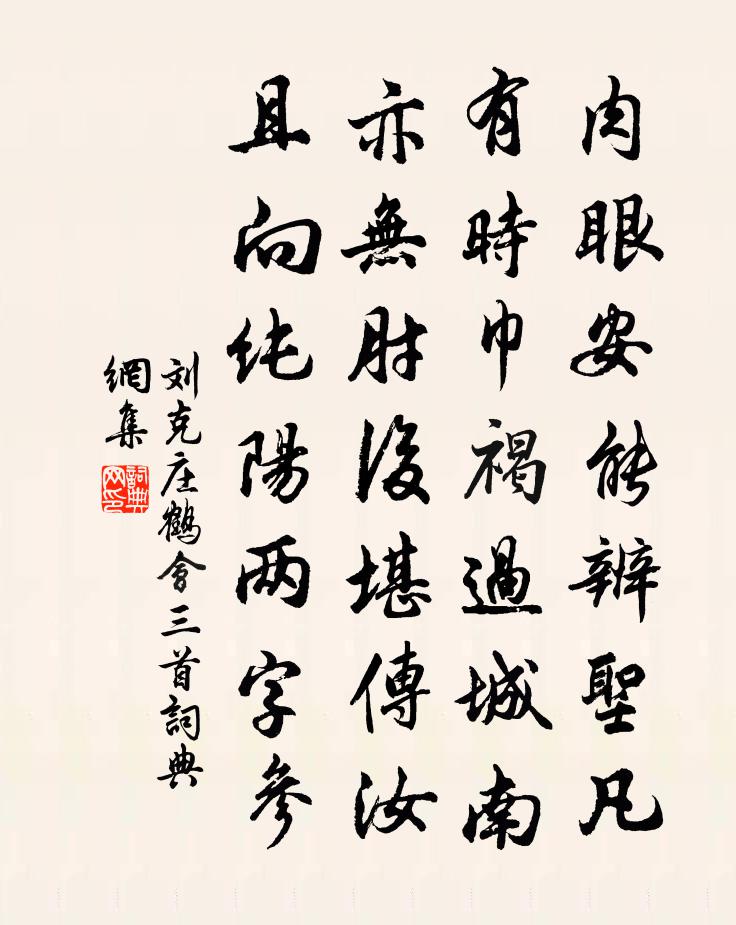 肉眼安能辨聖凡
有時巾褐過城南
亦無肘後堪傳汝
且向纯陽两字參
刘克庄鶴會三首詞典
網集
詞典網印